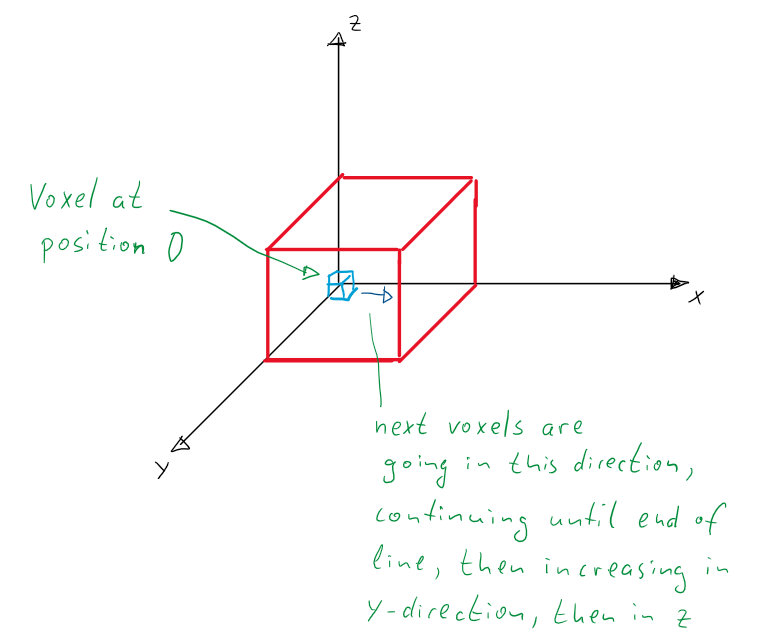 z
Voxel at
position 0
x
y
next voxels are
going in this direction,
continuing until end of
line, then increasing in
y-direction, then in z